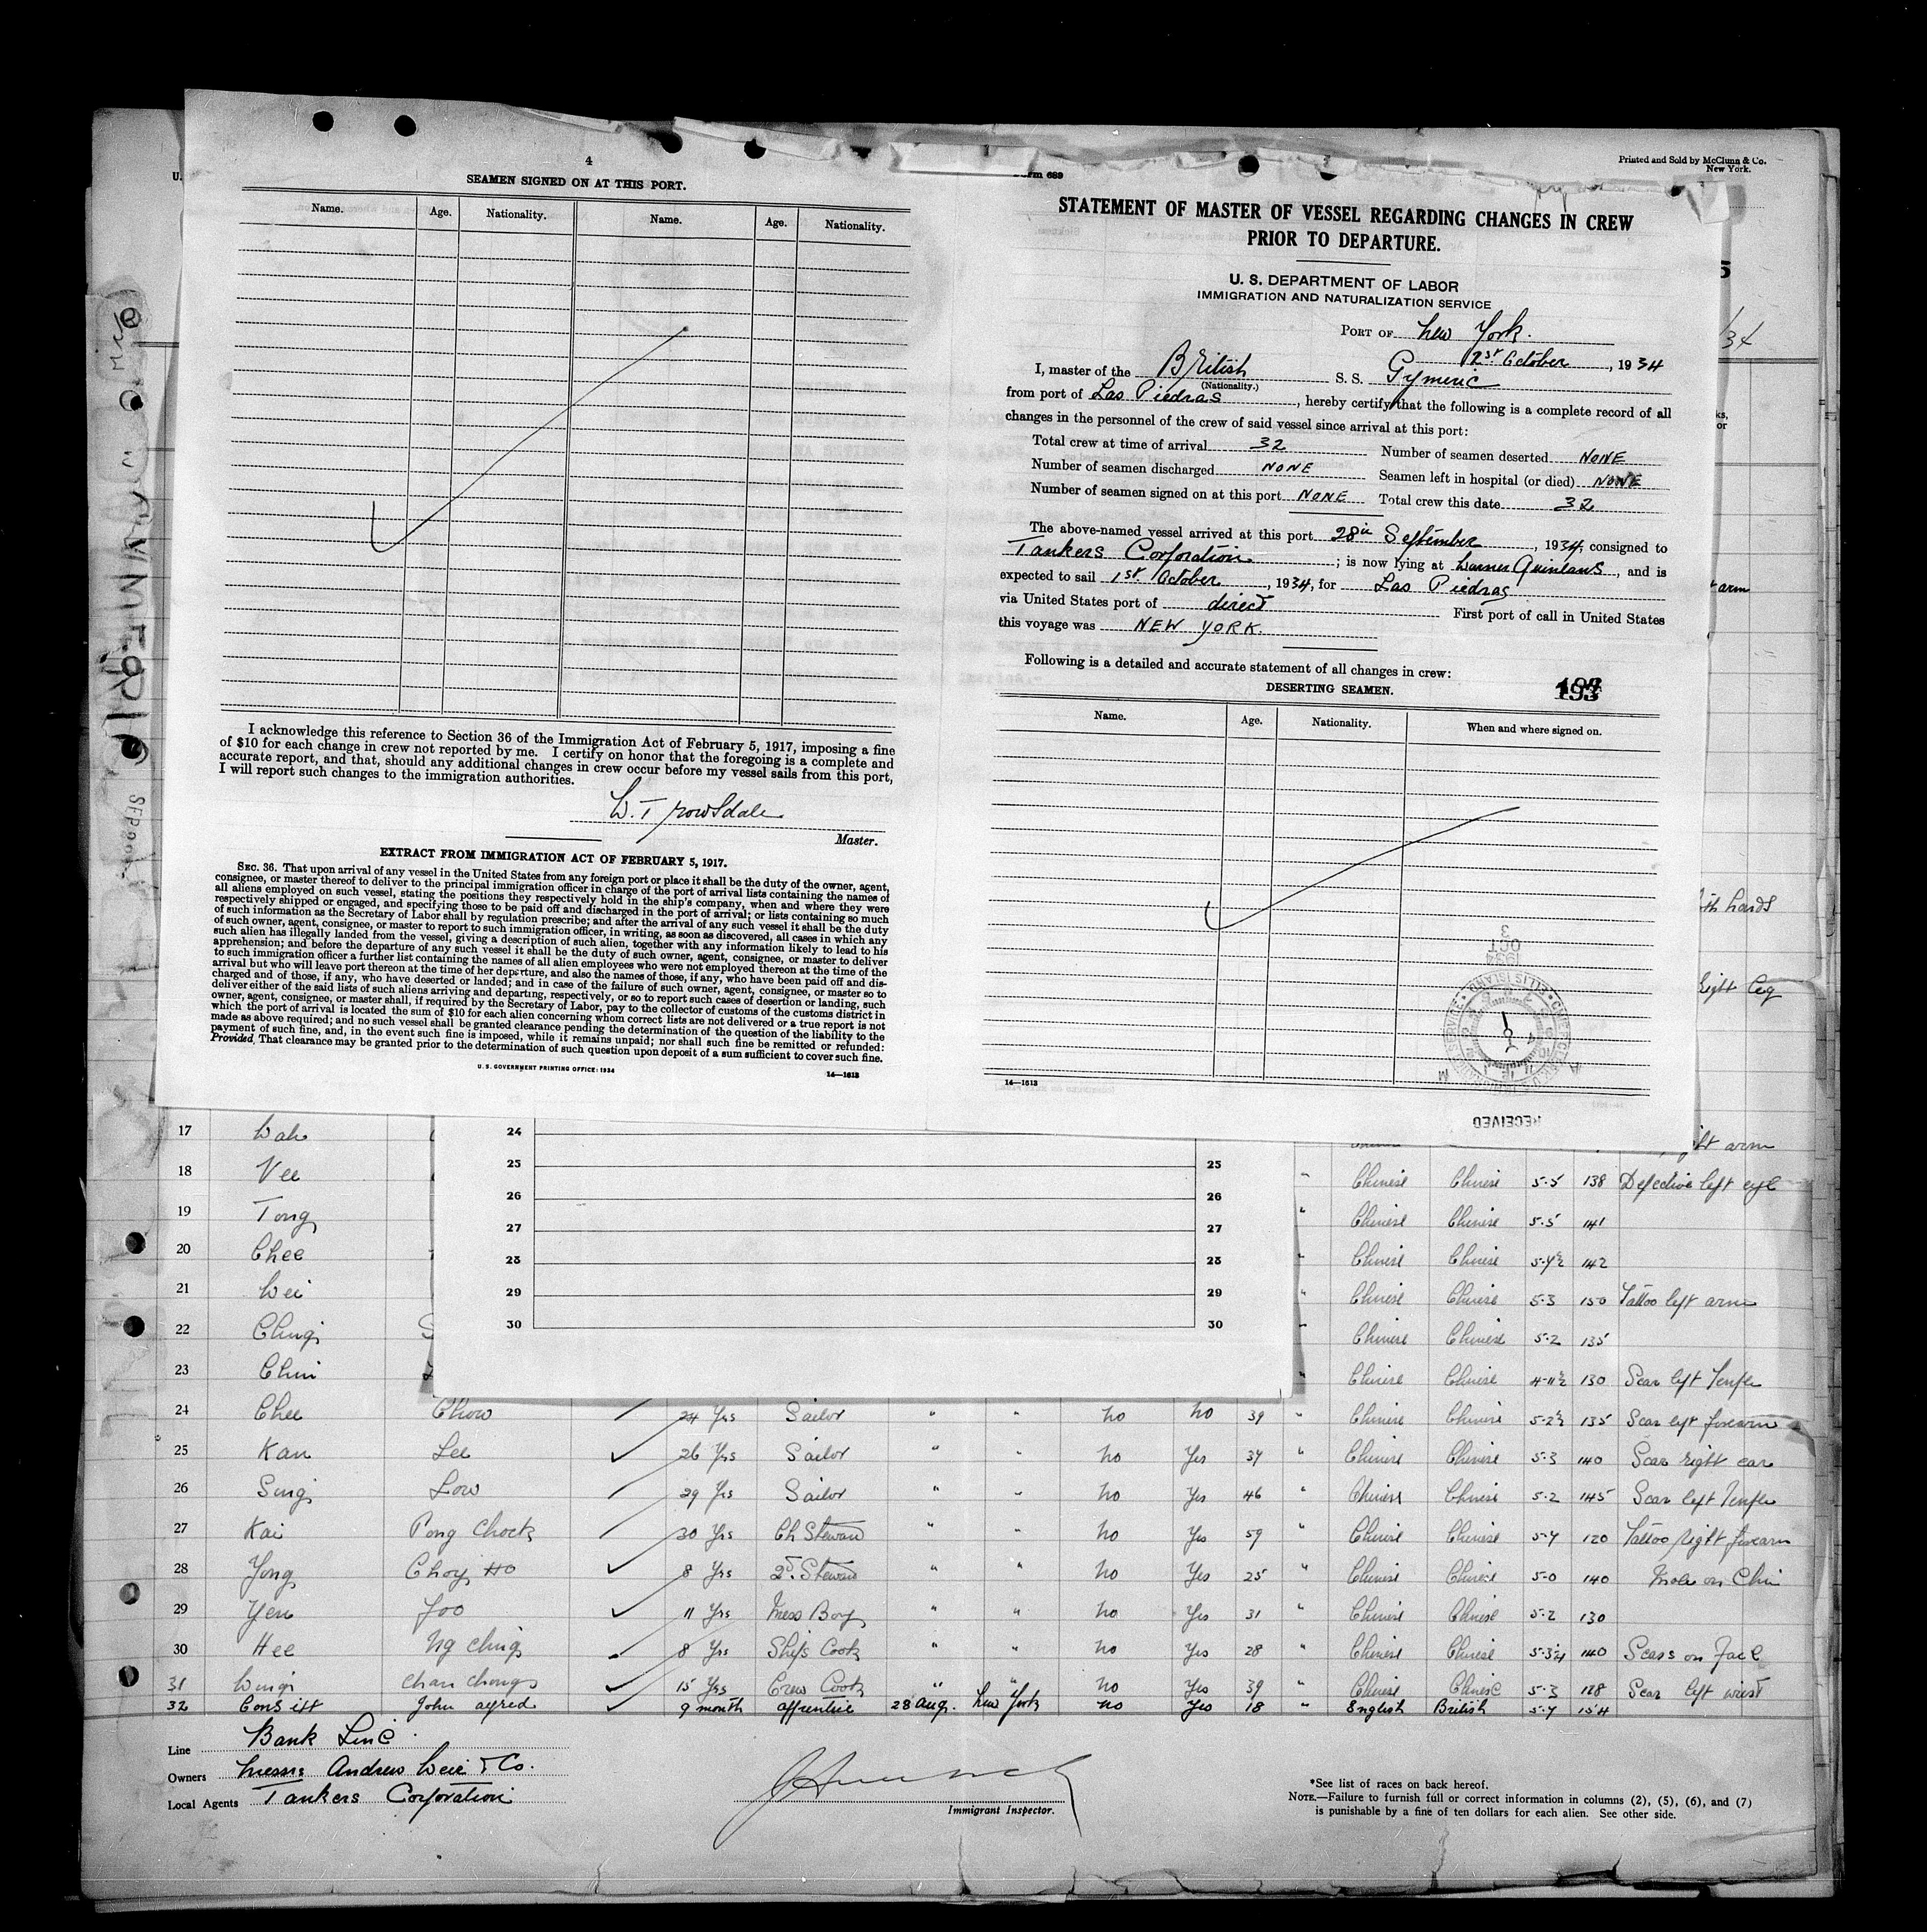 4
SEAMEN SIGNED ON AT THIS PORT.
Name. Age. Nationality. Name. Age. Nationality.
I acknowledge this reference to Section 36 of the Immigration Act of February 5, 1917, imposing a fine
of $10 for each change in crew not reported by me. I certify on honor that the foregoing is a complete and
accurate report, and that, should any additional changes in crew occur before my vessel sails from this port,
I will report such changes to the immigration authorities.
W. Trowsdale
Master.
EXTRACT FROM IMMIGRATION ACT OF FEBRUARY 5, 1917.
SEC. 36. That upon arrival of any vessel in the United States from any foreign port or place it shall be the duty of the owner, agent,
consignee, or master thereof to deliver to the principal immigration officer in charge of the port of arrival lists containing the names of
all aliens employed on such vessel, stating the positions they respectively hold in the ship's company, when and where they were
respectively shipped or engaged, and specifying those to be paid off and discharged in the port of arrival; or lists containing so much
of such information as the Secretary of Labor shall by regulation prescribe; and after the arrival of any such vessel it shall be the duty
of such owner, agent, consignee, or master to report to such immigration officer, in writing, as soon as discovered, all cases in which any
such alien has illegally landed from the vessel, giving a description of such alien, together with any information likely to lead to his
apprehension; and before the departure of any such vessel it shall be the duty of such owner, agent, consignee, or master to deliver
to such immigration officer a further list containing the names of all alien employees who were not employed thereon at the time of the
arrival but who will leave port thereon at the time of her departure, and also the names of those, if any, who have been paid off and dis-
charged and of those, if any, who have deserted or landed; and in case of the failure of such owner, agent, consignee, or master so to
deliver either of the said lists of such aliens arriving and departing, respectively, or so to report such cases of desertion or landing, such
owner, agent, consignee, or master shall, if required by the Secretary of Labor, pay to the collector of customs of the customs district in
which the port of arrival is located the sum of $10 for each alien concerning whom correct lists are not delivered or a true report is not
made as above required; and no such vessel shall be granted clearance pending the determination of the question of the liability to the
payment of such fine, and, in the event such fine is imposed, while it remains unpaid; nor shall such fine be remitted or refunded:
Provided, That clearance may be granted prior to the determination of such question upon deposit of a sum sufficient to cover such fine.
U. S. GOVERNMENT PRINTING OFFICE: 1934 14—1613
Printed and Sold by McClunn & Co.
New York.
Form 689
STATEMENT OF MASTER OF VESSEL REGARDING CHANGES IN CREW
PRIOR TO DEPARTURE.
U. S. DEPARTMENT OF LABOR
IMMIGRATION AND NATURALIZATION SERVICE
PORT OF New York.
1st October, 1934
I, master of the British S. S. Gymeric
(Nationality.)
from port of Las Piedras, hereby certify that the following is a complete record of all
changes in the personnel of the crew of said vessel since arrival at this port:
Total crew at time of arrival 32 Number of seamen deserted NONE
Number of seamen discharged NONE Seamen left in hospital (or died) NONE
Number of seamen signed on at this port NONE Total crew this date 32
The above-named vessel arrived at this port 28th September, 1934, consigned to
Tankers Corporation; is now lying at Warner Quinlans, and is
expected to sail 1st October, 1934, for Las Piedras
via United States port of direct First port of call in United States
this voyage was NEW YORK.
Following is a detailed and accurate statement of all changes in crew:
DESERTING SEAMEN. 193
Name. Age. Nationality. When and where signed on.
3
OCT
1934
ELLIS ISLAND
14—1613
RECEIVED
/34
arm
hands
right leg
24
25 25
26 26
27 27
28 28
29 29
30 30
17 Wah arm
18 Vee " Chinese Chinese 5-5 138 Defective left eye
19 Tong " Chinese Chinese 5-5 141
20 Chee " Chinese Chinese 5-4½ 142
21 Wei " Chinese Chinese 5-3 150 Tattoo left arm
22 Ching " Chinese Chinese 5-2 135
23 Chin " Chinese Chinese 4-11½ 130 Scar left Temple
24 Chee Chow 24 Yrs Sailor " " no no 39 " Chinese Chinese 5-2½ 135 Scar left forearm
25 Kan Lee 26 Yrs Sailor " " no Yes 37 " Chinese Chinese 5-3 140 Scar right ear
26 Sing Low 29 Yrs Sailor " " no Yes 46 " Chinese Chinese 5-2 145 Scar left Temple
27 Kai Pong Chock 30 Yrs Ch Steward " " no Yes 59 " Chinese Chinese 5-4 120 Tattoo right forearm
28 Yong Choy Ho 8 Yrs 2d. Steward " " no Yes 25 " Chinese Chinese 5-0 140 Mole on Chin
29 Yen Foo 11 Yrs Mess Boy " " no Yes 31 " Chinese Chinese 5-2 130
30 Hee Ng Ching 8 Yrs Ships Cook " " no Yes 28 " Chinese Chinese 5-3¼ 140 Scars on Face
31 Wing Chan Chong 15 Yrs Crew Cook " " no Yes 39 " Chinese Chinese 5-3 128 Scar left wrist
32 Consitt John Alfred 9 month apprentice 28 Aug. New York no Yes 18 " English British 5-7 154
Line Bank Line
Owners Messrs Andrew Weir & Co.
Local Agents Tankers Corporation
Immigrant Inspector.
*See list of races on back hereof.
NOTE.—Failure to furnish full or correct information in columns (2), (5), (6), and (7)
is punishable by a fine of ten dollars for each alien. See other side.